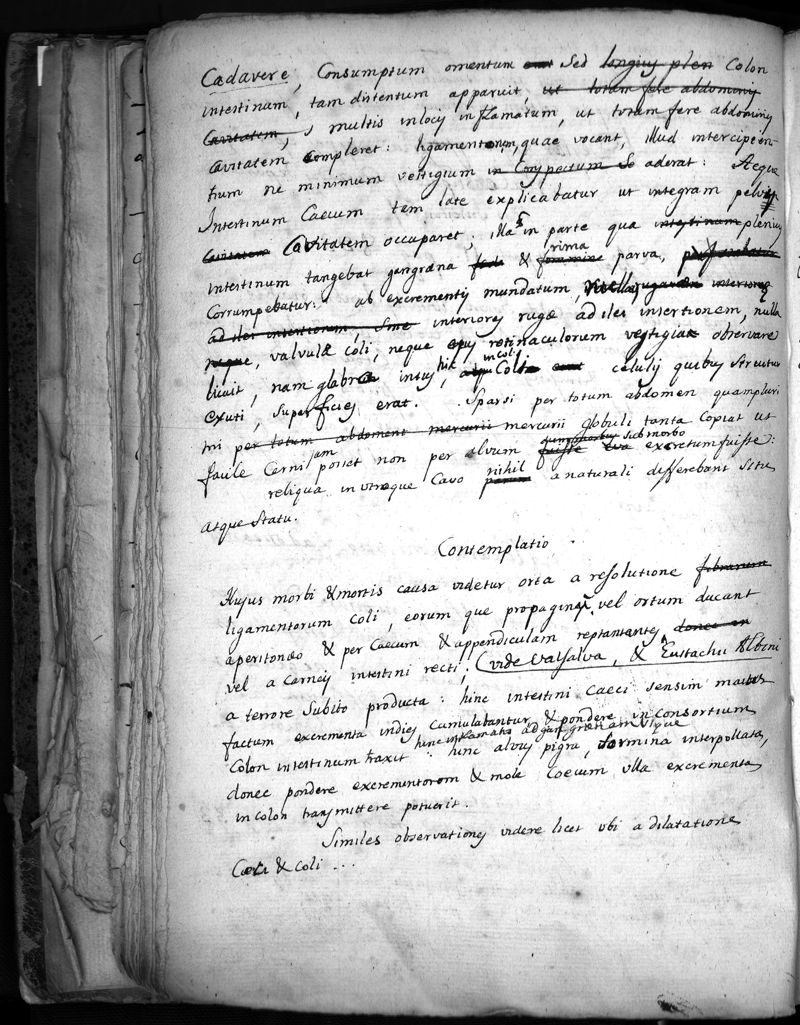 Cadavere, Consumptum omentum Sed longius plen Colon
intestinum, tam distentum apparuit, ut totam fere abdominis
Cavitatem, & multis in locis inflamatum, ut totam fere abdominis
Cavitatem compleret: ligamentorum, quae vocant, illud intercipien-
tium ne minimum vestigium in Conspectum aderat: Aeque
Intestinum Caecum tam late explicabatur ut integram pelvis
Cavitatem Cavitatem occuparet; illa in parte qua intestinum plenius
intestinum tangebat gangraena & foramine rima parva, perforabatur
Corrumpebatur: ab excrementis mundatum, rugarum interiores
ad iles intertionem, Sine interiores rugae ad iles insertionem, nulla
neque, valvulae Coli, neque ejus retinaculorum vestigia observare
licuit, nam glabra intus, hic in coli celulis quibus Streutur
exuti, Superficies erat. Sparsi per totum abdomen quampluri
mi per totum abdoment mercurii mercurii globuli tanta Copia ut
facile Cerni posset non per alvum fuisse quimphoribus sub morbo excretum fuisse:
jam reliqua in utroque Cavo parum nihil a naturali differebant Situ
atque Statu.
Contemplatio
Hujus morbi & mortis causa videtur orta a resolutione fibrarum
ligamentorum Coli, eorum que propagines, vel ortum ducant
a peritonaeo & per Caecum & appendiculam reptantes, donec an
vel a Carneis intestini recti; (vide Valsalva, & Eustachii Albini
a terrore Subito producta: hinc intestini Caeci sensim maius
factum excrementa indies cumulabantur & pondere in Consortium
Colon intestinum traxit: hinc inflamatio ad gangraenam usque
hinc alvus pigra, tormina interpollata,
donec pondere excrementorum & mole Coecum illa excrementa
in colon transmittere potuerit.
Similes observationes videre licet ubi a dilatatione
Caeci & Coli ...